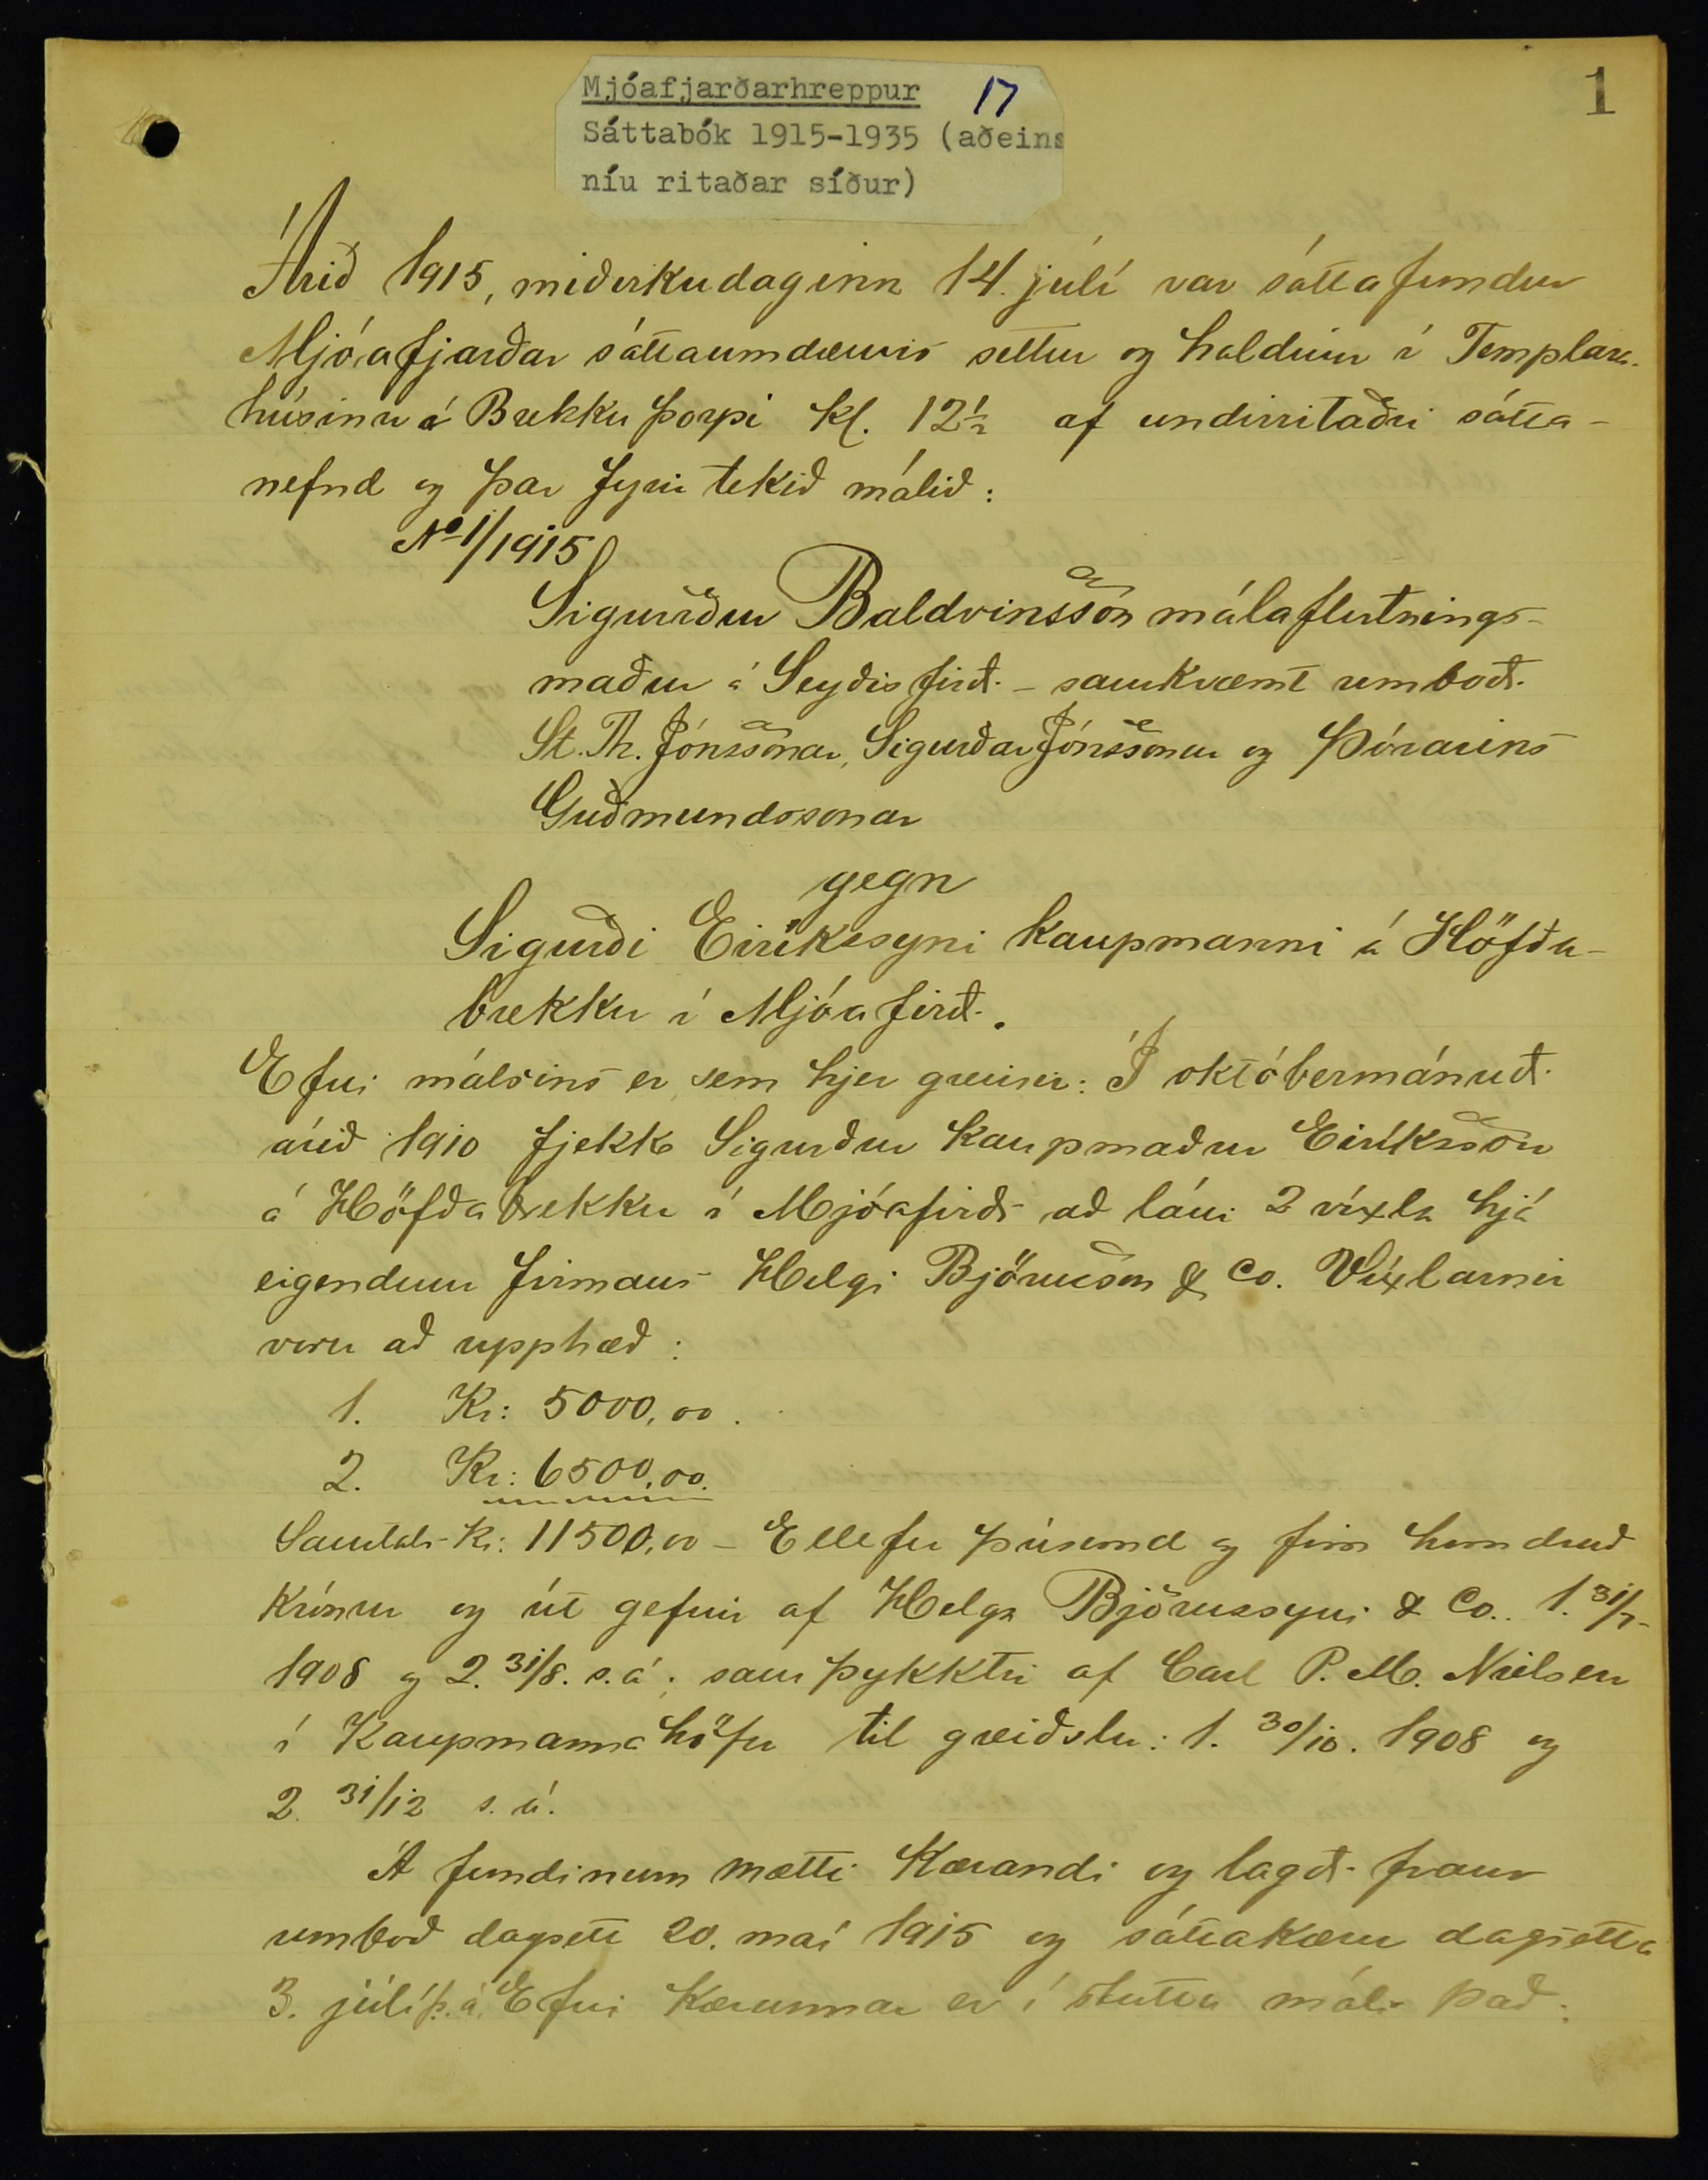 1
Mjóafjarðarhreppur 17
Sáttabók 1915-1935 (aðeins
níu ritaðar síður)
Árið 1915, miðvikudaginn 14. júlí var sáttafundur
Mjóafjarðar sáttaumdæmis settur og haldinn í Templara-
húsinu á Brekkuþorpi kl. 12½ af undirritaðri sátta-
nefnd og þar fyrir tekið málið:
No 1/1915
Sigurður Baldvinsson málaflutnings-
maður á Seyðisfirði - samkvæmt umboði
St. Th. Jónssonar, Sigurðar Jónssonar og Þórarins
Guðmundssonar
gegn
Sigurði Eiríkssyni kaupmanni á Höfða-
brekku í Mjóafirði.
Efni málsins er sem hjer greinir: Í októbermánuði
árið 1910 fjekk Sigurður kaupmaður Eiríksson
á Höfðabrekku í Mjóafirði að láni 2 víxla hjá
eigendum firmans Helgi Björnsson & Co. Víxlarnir
voru að upphæð:
1. Kr: 5000,00.
2. Kr: 6500,00.
Samtals Kr: 11500,00 - Ellefu þúsund og fimm hundruð
krónur og út gefnir af Helga Björnssyni & Co. 1. 31/7-
1908 og 2. 31/8. s.á; samþykktir af Carl P. M. Nielsen
í Kaupmannahöfn til greiðslu: 1. 30/10. 1908 og
2. 31/12 s. á.
Á fundinum mætti kærandi og lagði fram
umboð dagsett 20. maí 1915 og sáttakæru dagsetta
3. júlí þ. á. Efni kærunnar er í stuttu máli það: